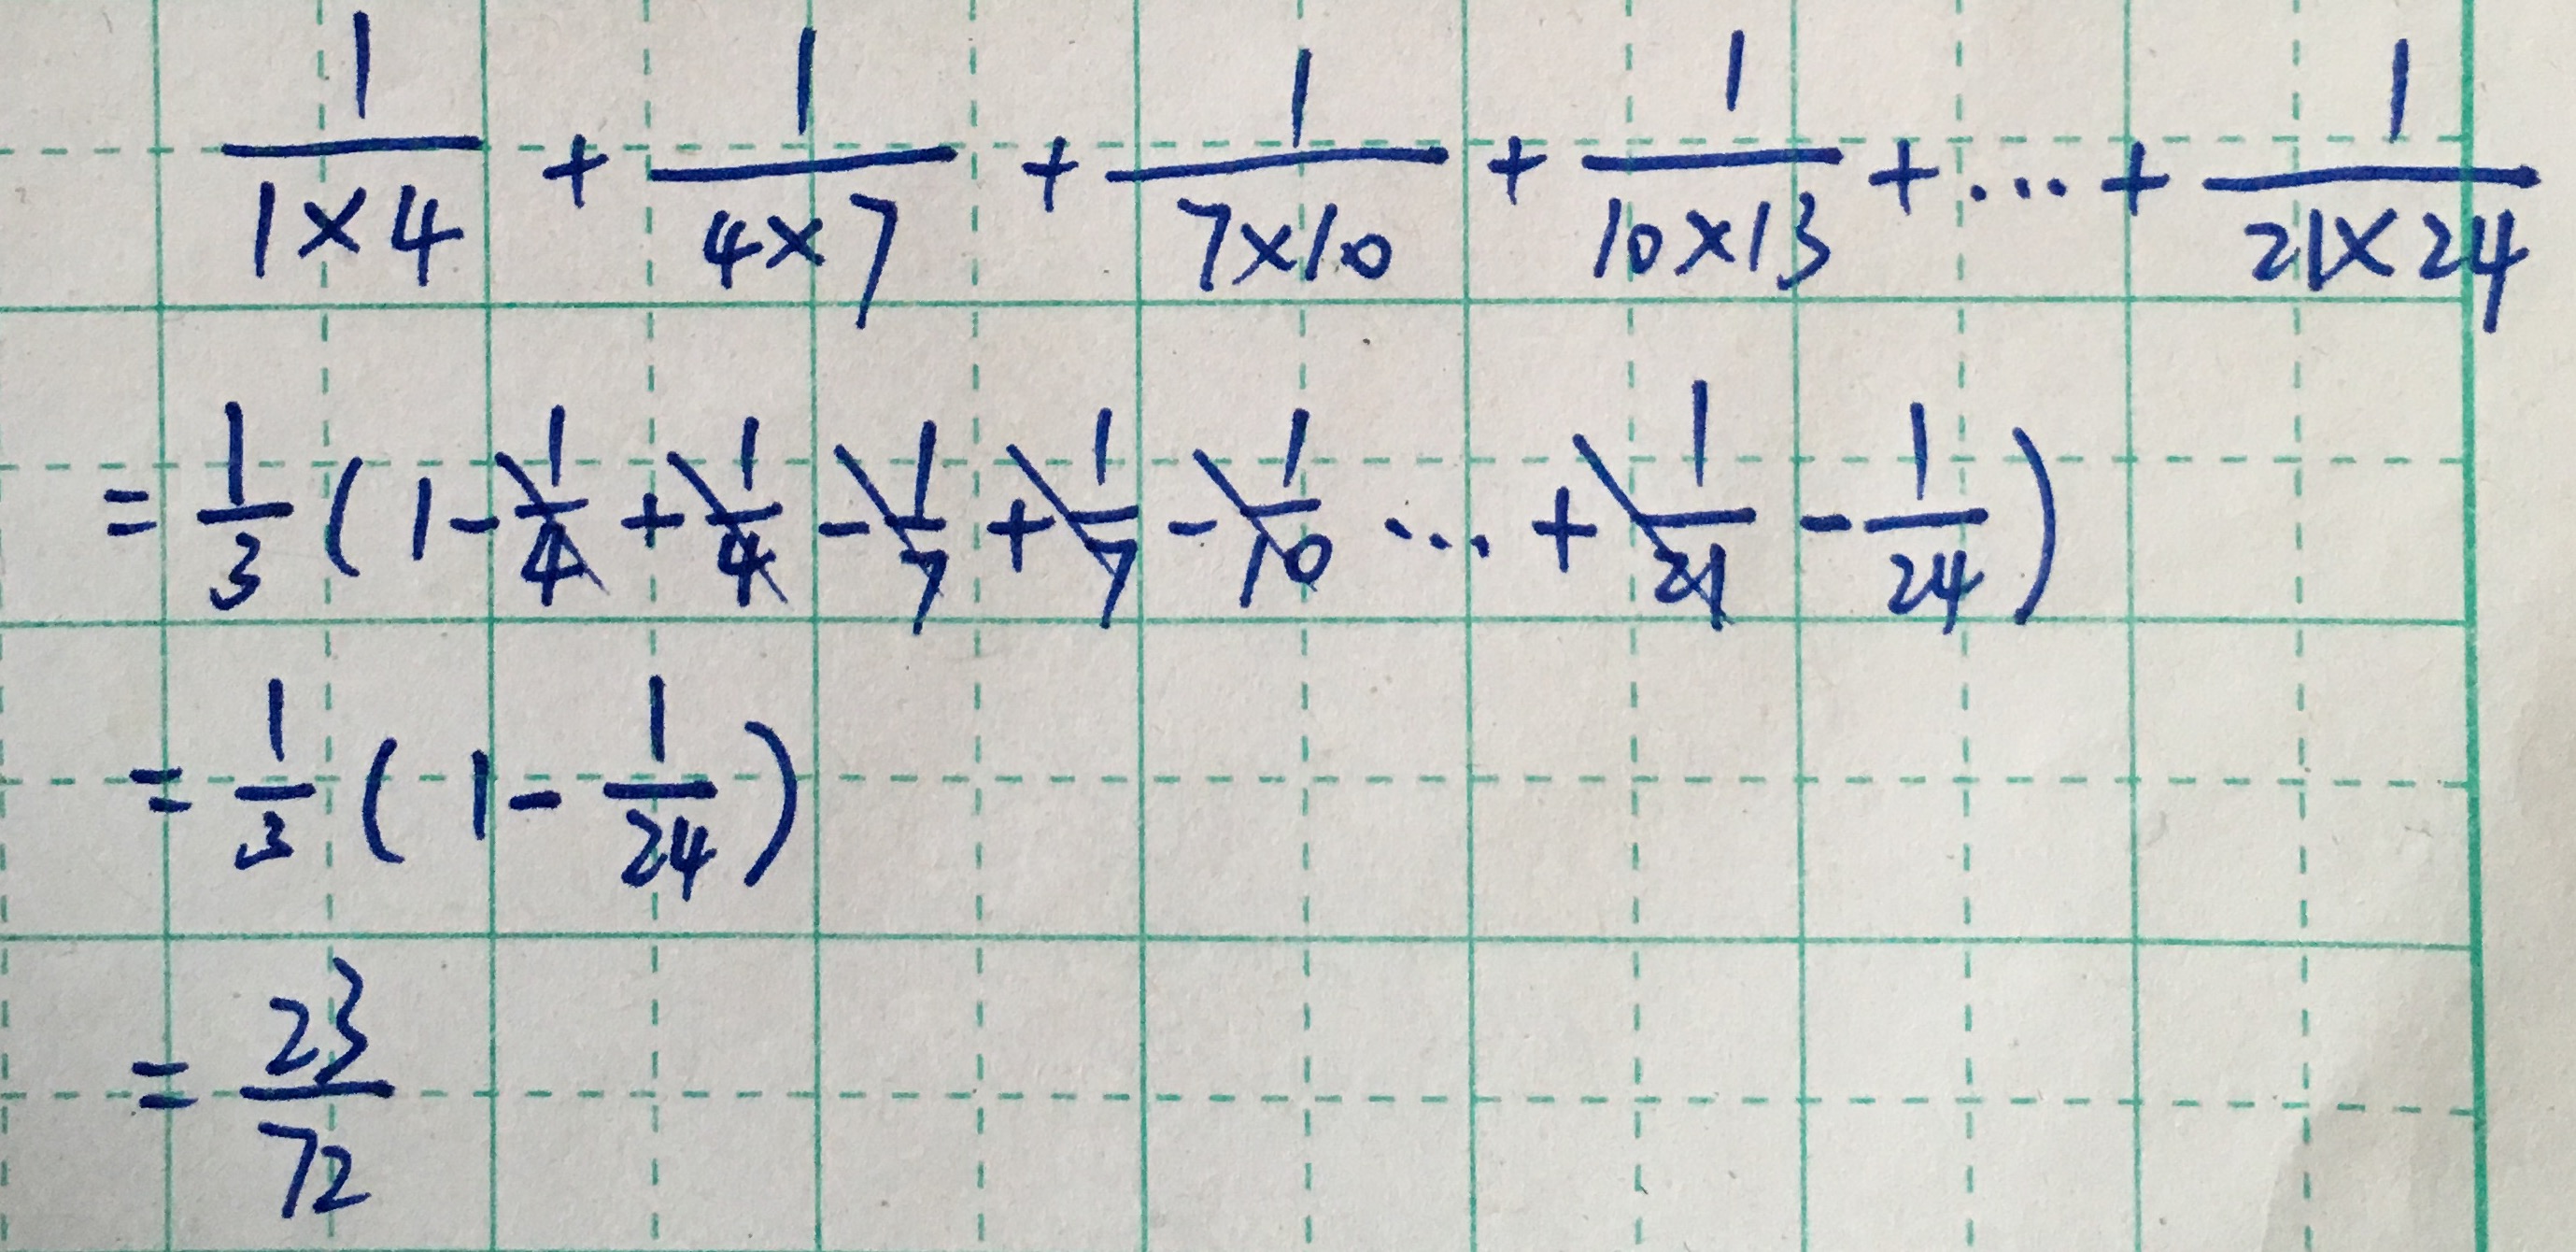 1/(1×4) + 1/(4×7) + 1/(7×10) + 1/(10×13) + ... + 1/(21×24)
= 1/3 (1 - 1/4 + 1/4 - 1/7 + 1/7 - 1/10 ... + 1/21 - 1/24)
= 1/3 (1 - 1/24)
= 23/72